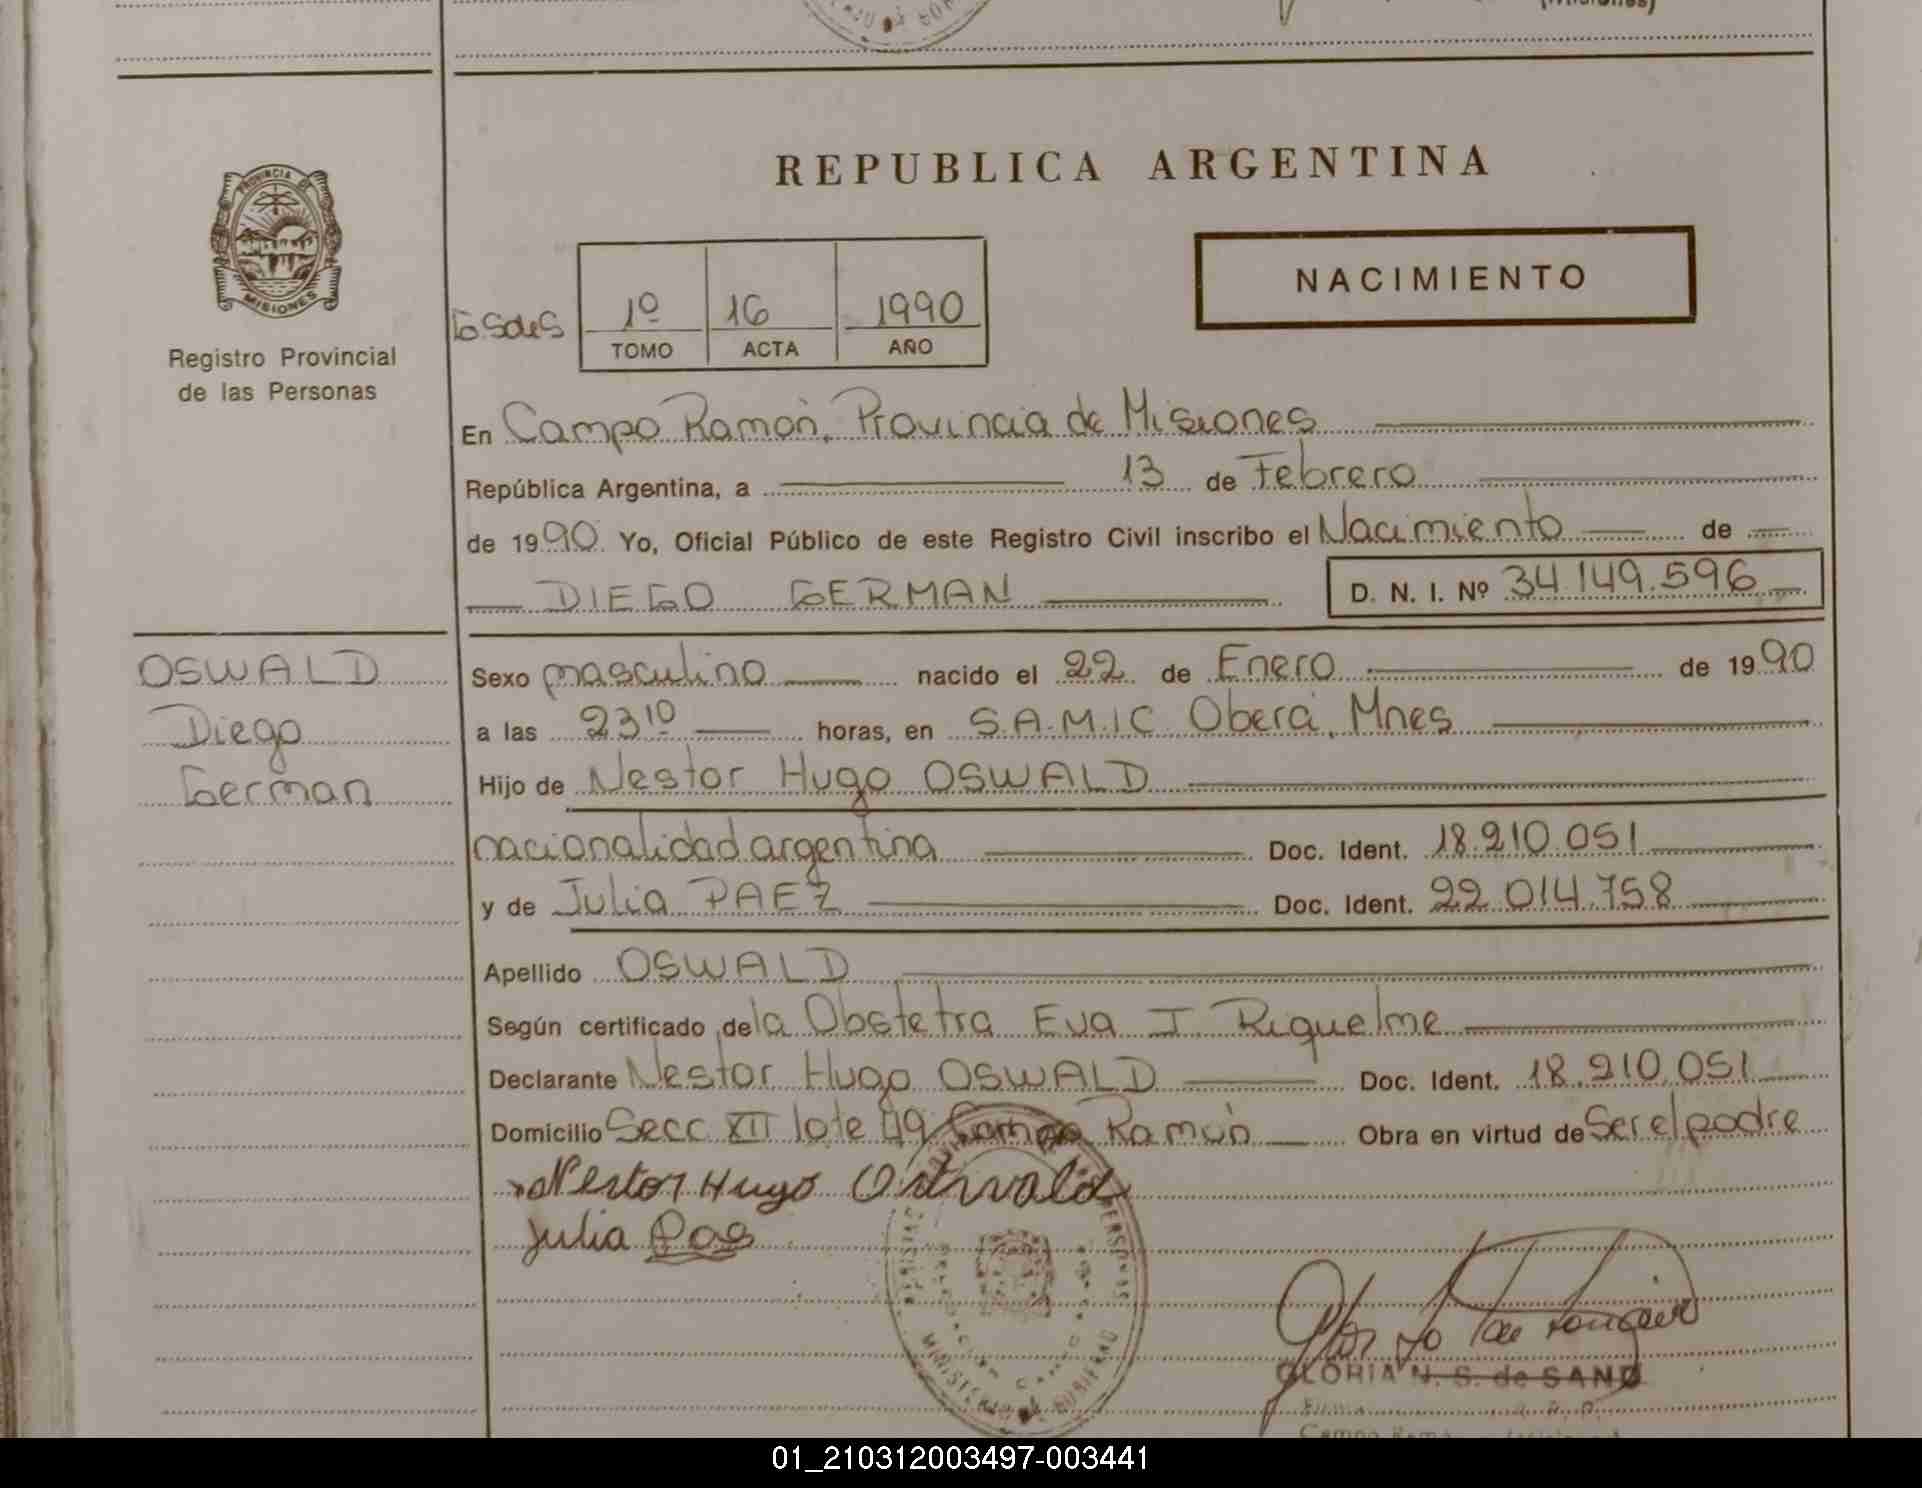 (Misiones)
PROVINCIA DE
MISIONES
Registro Provincial
de las Personas
REPUBLICA ARGENTINA
NACIMIENTO
1º 16 1990
TOMO ACTA AÑO
En Campo Ramón, Provincia de Misiones
República Argentina, a 13 de Febrero
de 1990 Yo, Oficial Público de este Registro Civil inscribo el Nacimiento de
DIEGO GERMAN D. N. I. Nº 34.149.596
OSWALD
Diego
German
Sexo masculino nacido el 22 de Enero de 1990
a las 23 10 horas, en S.A.M.I.C Oberá, Mnes
Hijo de Nestor Hugo OSWALD
nacionalidad argentina Doc. Ident. 18.210.051
y de Julia PAEZ Doc. Ident. 22.014.758
Apellido OSWALD
Según certificado de la Obstetra Eva I Riquelme
Declarante Nestor Hugo OSWALD Doc. Ident. 18.210.051
Domicilio Secc XII lote 49 Campo Ramón Obra en virtud de Ser el padre
Nestor Hugo Oswald
Julia
GLORIA N. S. de SAND
01_210312003497-003441